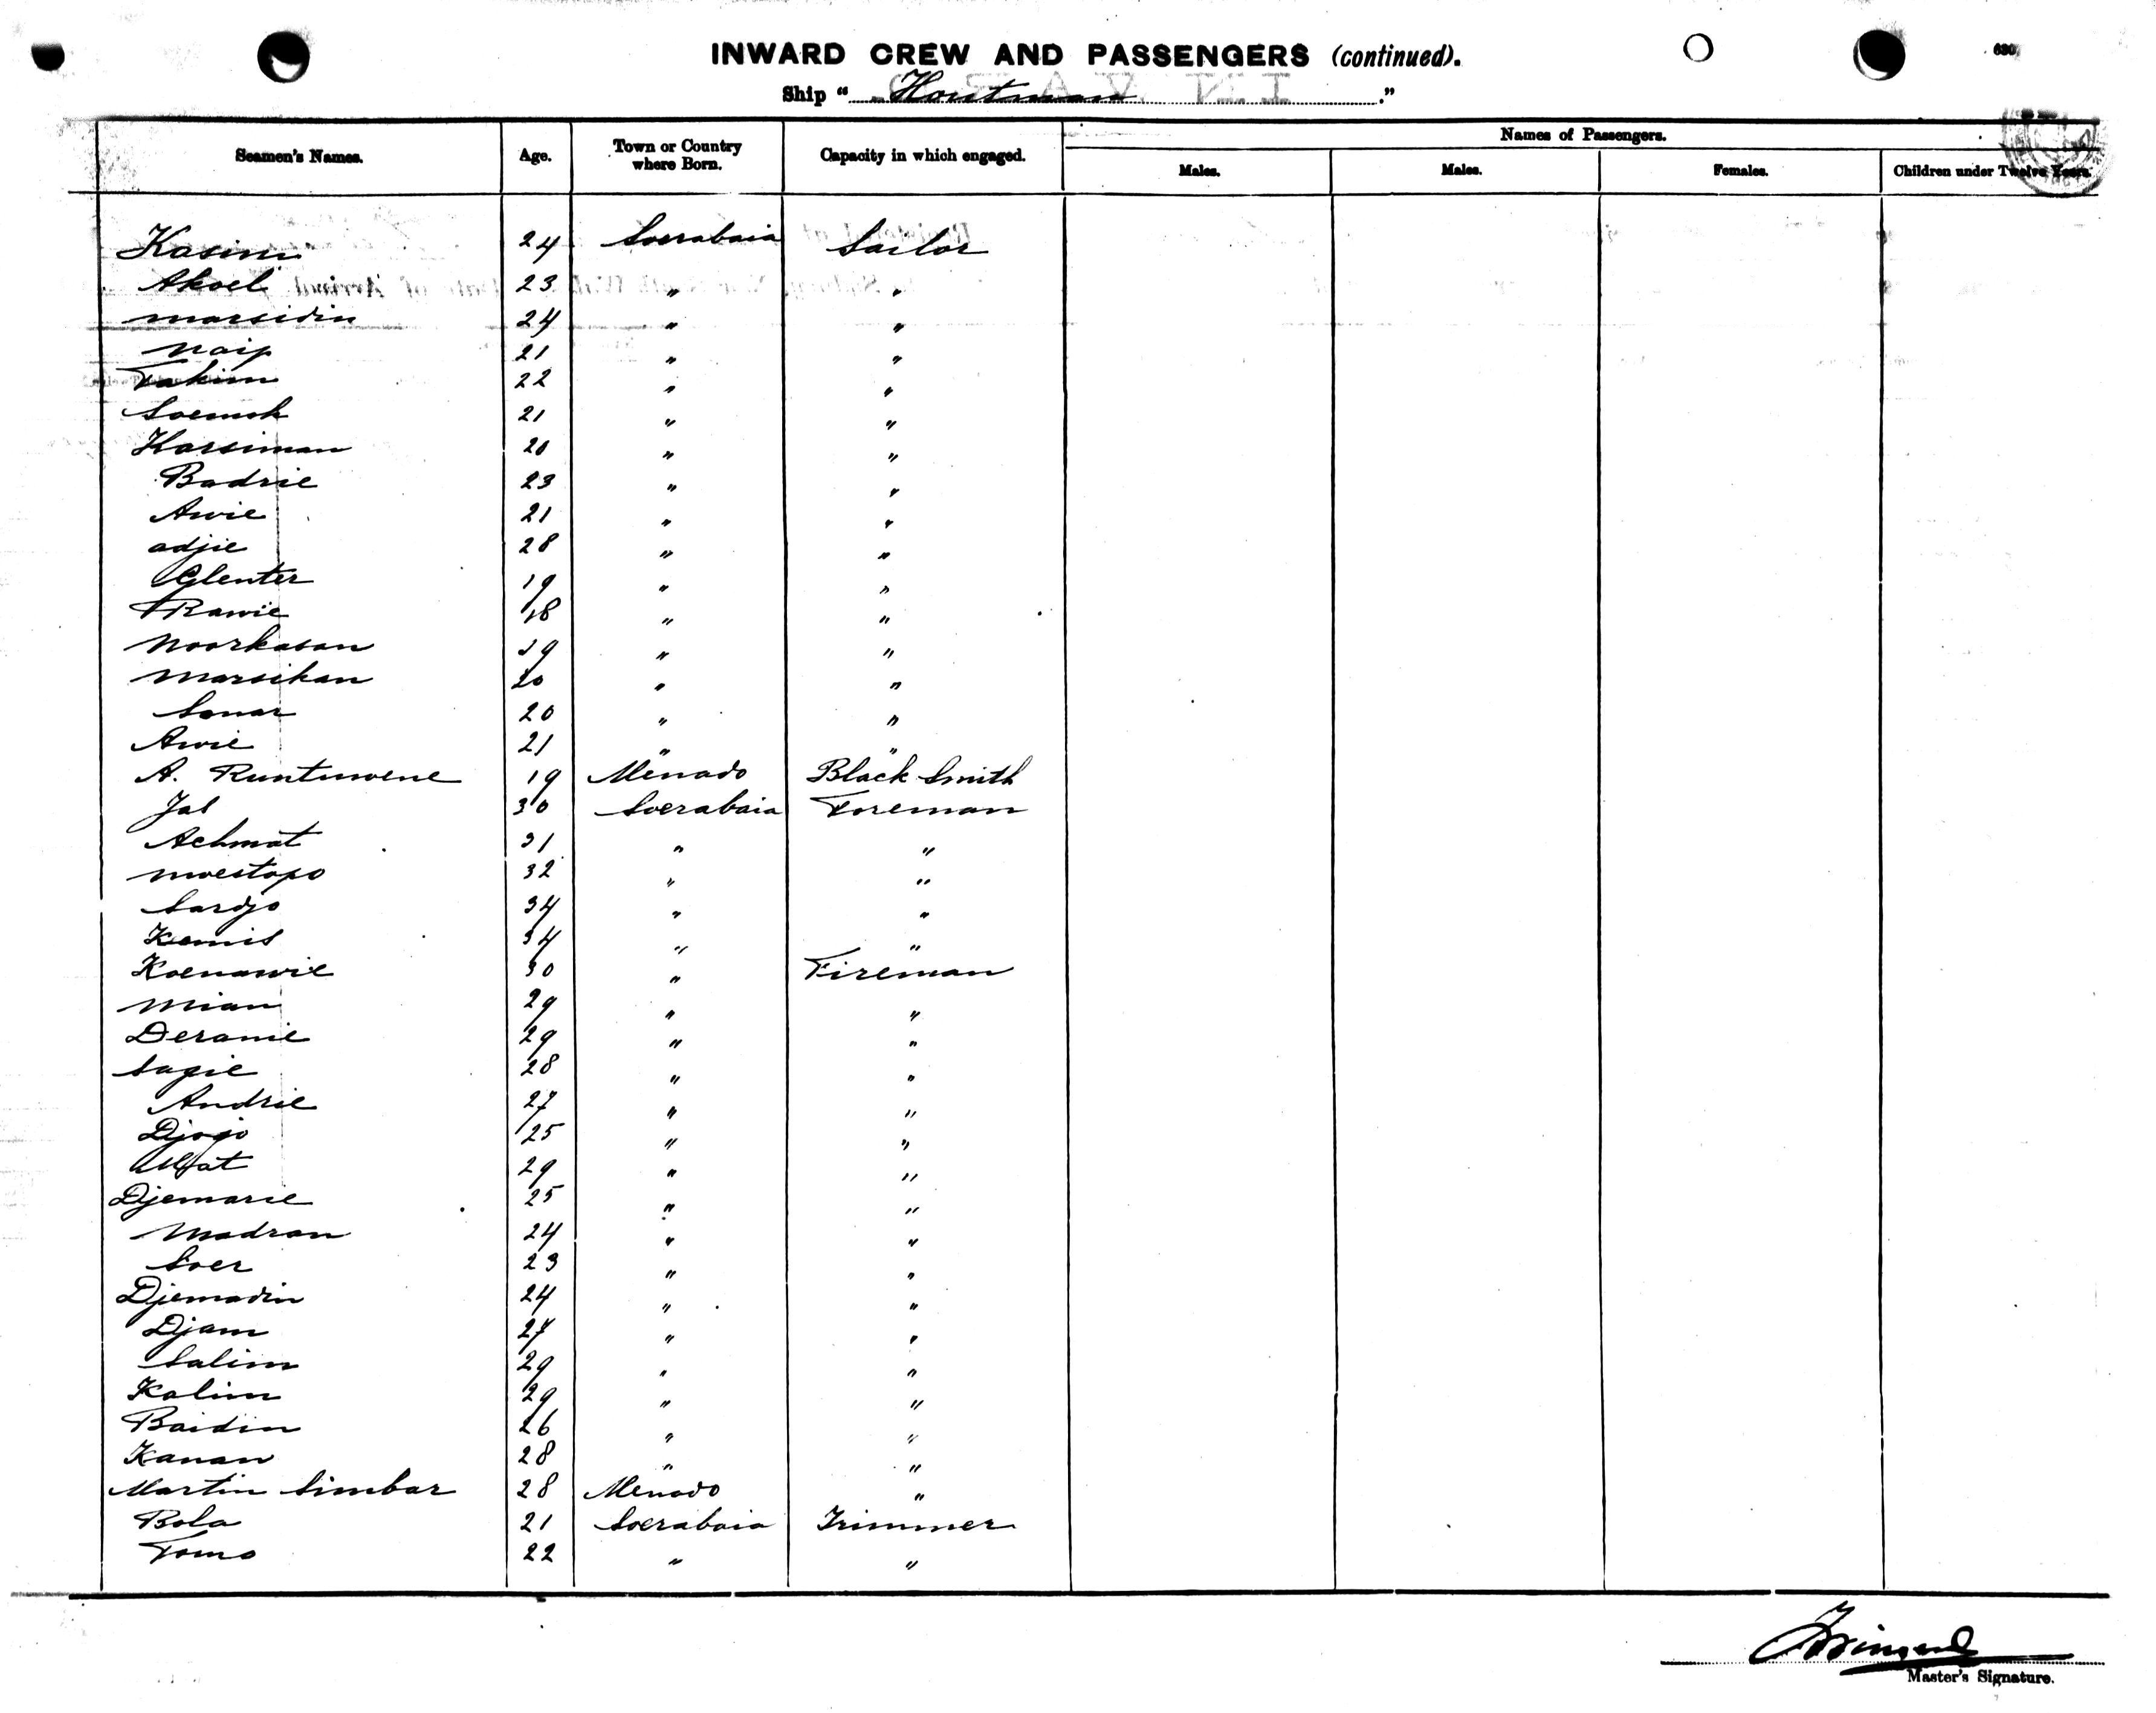 INWARD CREW AND PASSENGERS (continued).
Ship " Houtman ."
Names of Passengers.
Seamen's Names. Age. Town or Country where Born. Capacity in which engaged. Males. Males. Females. Children under Twelve Years.
Kasim 24 Soerabaia Sailor
Akoel 23 " "
Marsidin 24 " "
Naip 21 " "
Takim 22 " "
21 " "
Karsiman 20 " "
Badrie 23 " "
Awie 21 " "
adjie 28 " "
Glenter 19 " "
Rawie 18 " "
Noorkasan 19 " "
Marsikan 20 " "
Sanar 20 " "
Awie 21 " "
A. Runtuwene 19 Menado Black Smith
Jas 30 Soerabaia Foreman
Achmat 31 " "
Moestopo 32 " "
Sardjo 34 " "
Kemis 34 " "
Koenawie 30 " Fireman
Mian 29 " "
Deramie 29 " "
Sagie 28 " "
Andrie 27 " "
Djojo 25 " "
29 " "
Djemarie 25 " "
Madran 24 " "
Soer 23 " "
Djemadin 24 " "
Djam 27 " "
Salim 29 " "
Kalim 29 " "
Baidin 26 " "
Kanan 28 " "
Martin Simbar 28 Menado "
Bola 21 Soerabaia Trimmer
Tomo 22 " "
Master's Signature.